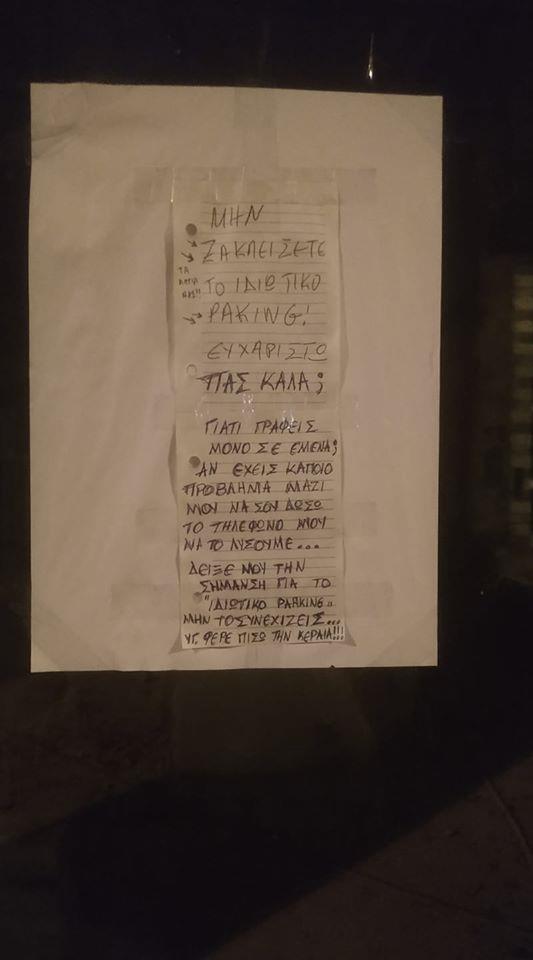 ΜΗΝ
ΖΑΚΛΕΙΣΕΤΕ
ΤΟ ΙΔΙΩΤΙΚΟ
PAKING!
ΕΥΧΑΡΙΣΤΩ
ΤΑ
ΜΑΣ!!
ΠΑΣ ΚΑΛΑ;
ΓΙΑΤΙ ΓΡΑΦΕΙΣ
ΜΟΝΟ ΣΕ ΕΜΕΝΑ;
ΑΝ ΕΧΕΙΣ ΚΑΠΟΙΟ
ΠΡΟΒΛΗΜΑ ΜΑΖΙ
ΜΟΥ ΝΑ ΣΟΥ ΔΩΣΩ
ΤΟ ΤΗΛΕΦΩΝΟ ΜΟΥ
ΝΑ ΤΟ ΛΥΣΟΥΜΕ...
ΔΕΙΞΕ ΜΟΥ ΤΗΝ
ΣΗΜΑΝΣΗ ΓΙΑ ΤΟ
"ΙΔΙΩΤΙΚΟ PARKING"
ΜΗΝ ΤΟ ΣΥΝΕΧΙΖΕΙΣ...
ΥΓ. ΦΕΡΕ ΠΙΣΩ ΤΗΝ ΚΕΡΑΙΑ!!!